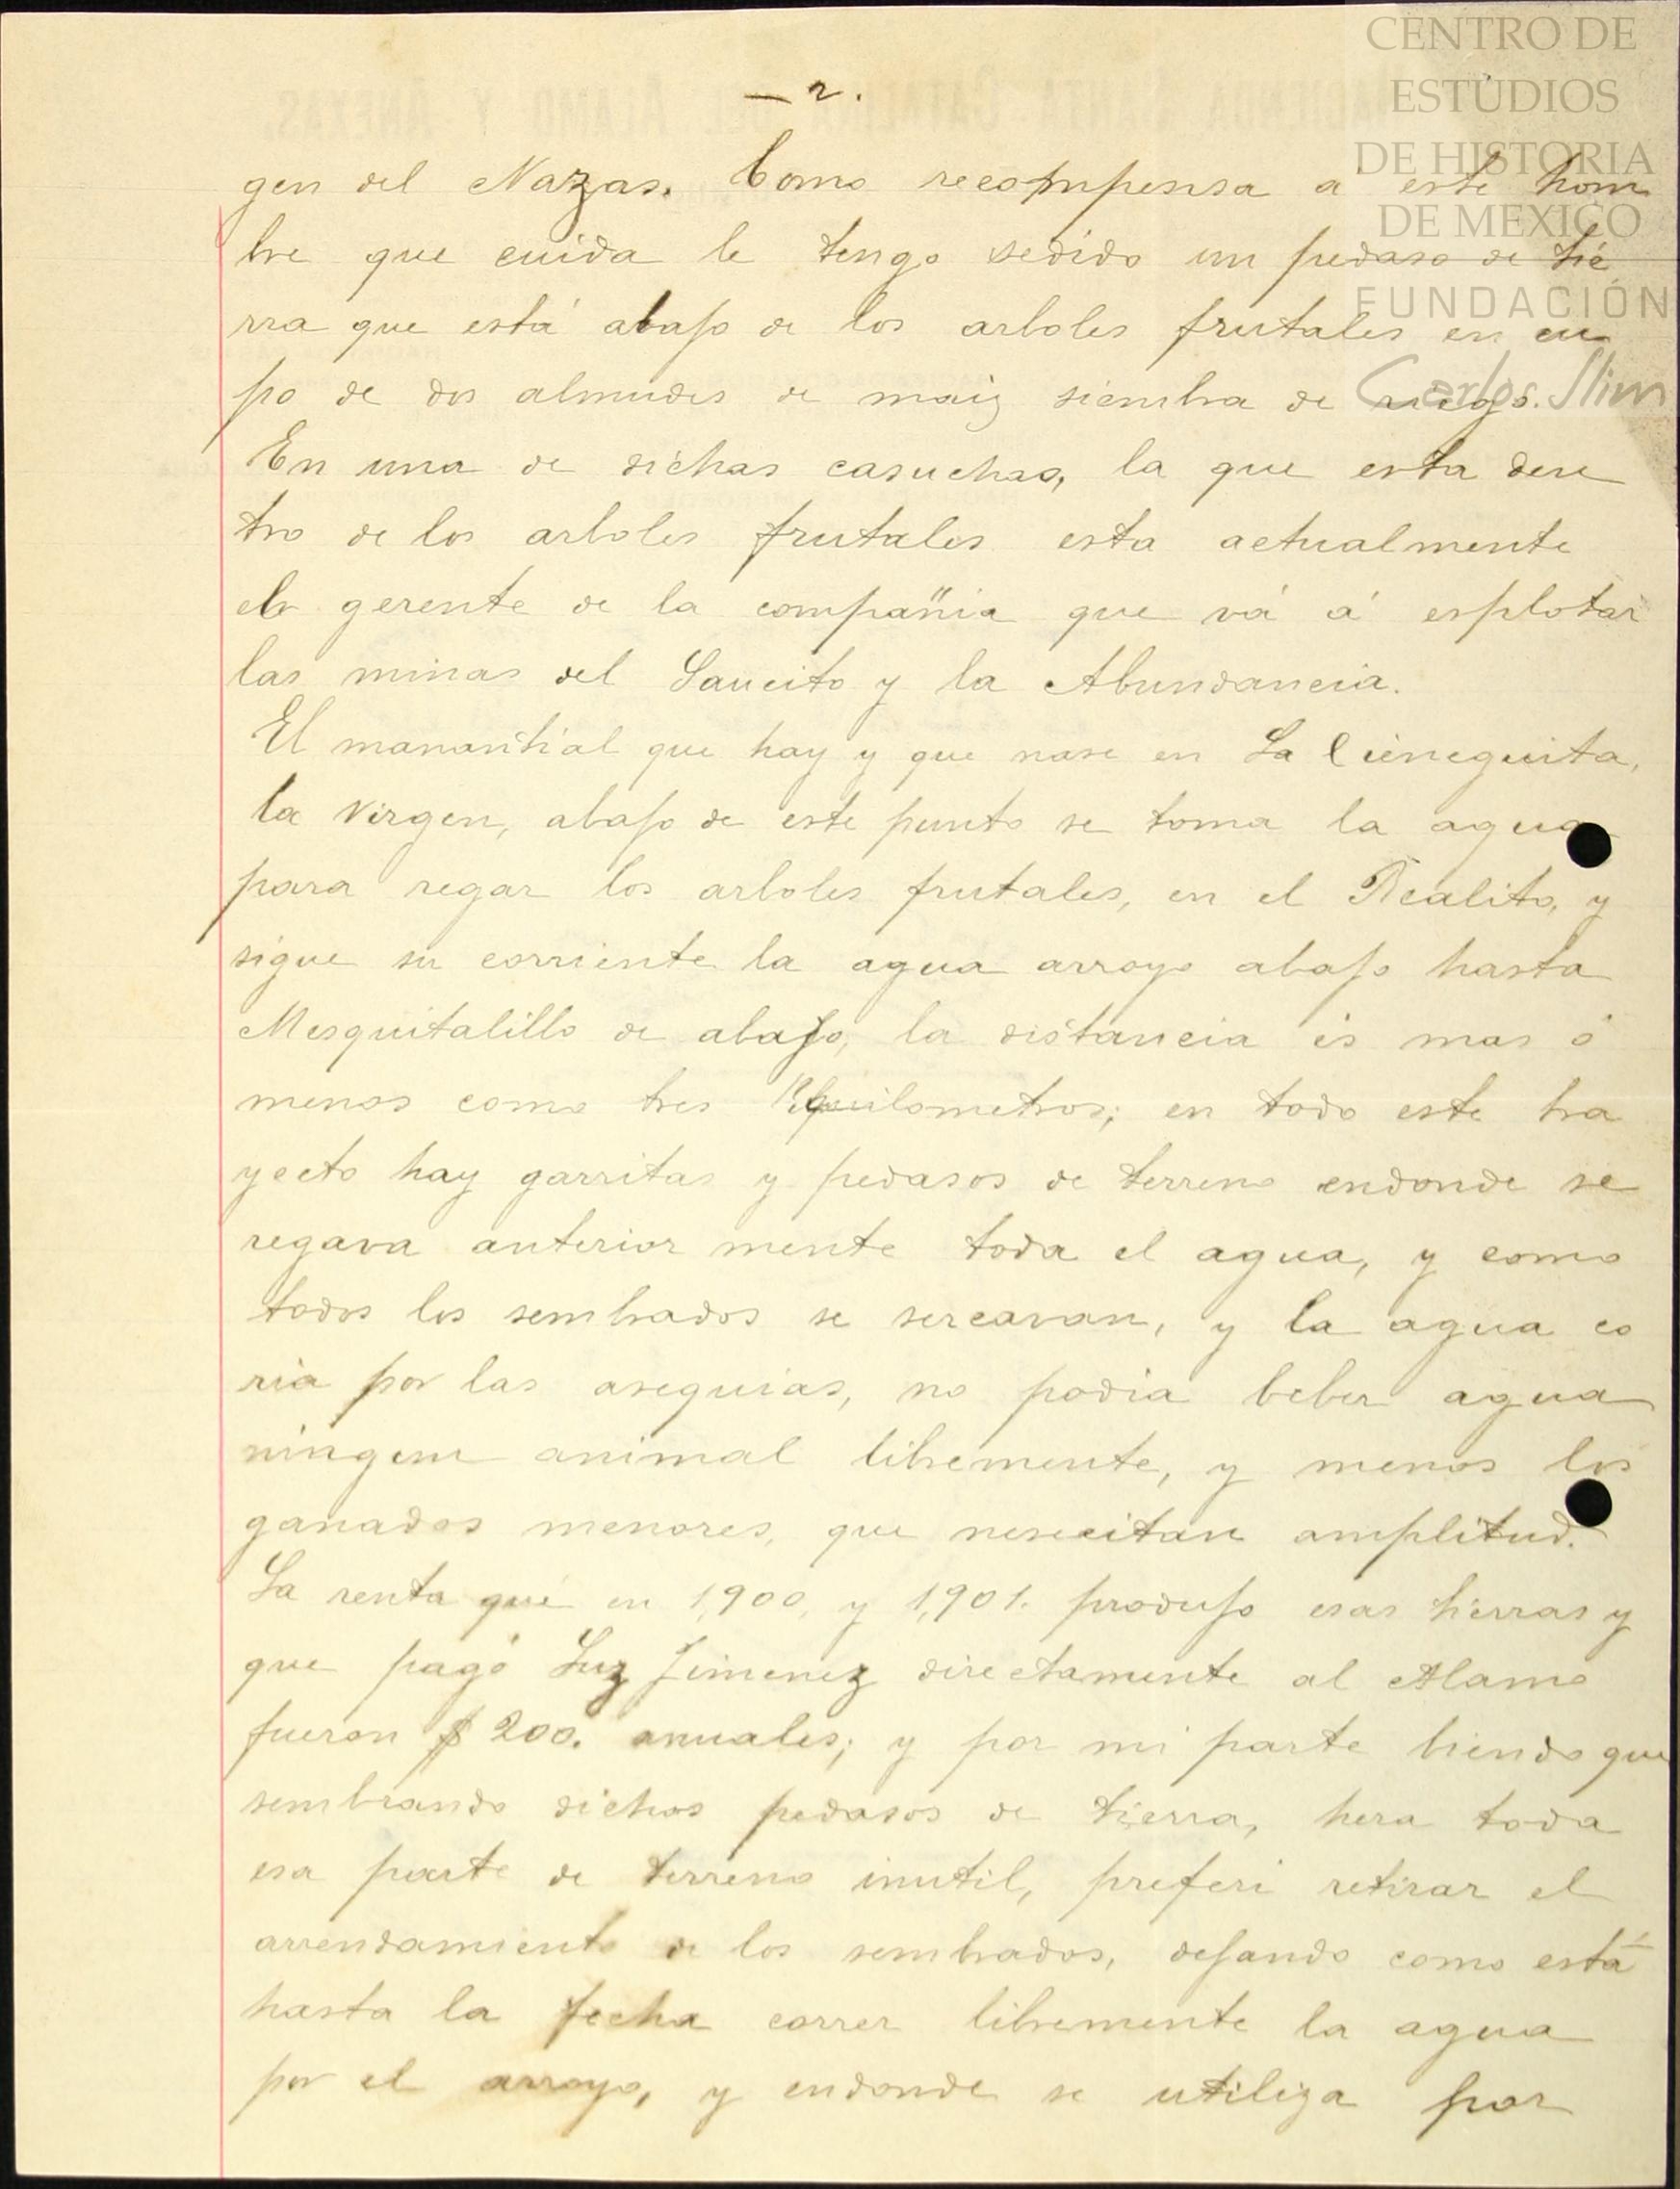 CENTRO DE
ESTUDIOS
DE HISTORIA
DE MEXICO
FUNDACIÓN
Carlos Slim
HACIENDA SANTA CATALINA DEL ALAMO Y ANEXAS.
— 2.
gen del Nazas. Como recompensa a este hom
bre que cuida le tengo sedido un pedaso de tie
rra que está abajo de los arboles frutales en cu
po de dos almudes de maiz siembra de riego.
En una de dichas casuchas, la que esta den
tro de los arboles frutales esta actualmente
el gerente de la compañia que vá á esplotar
las minas del Saucito y la Abundancia.
El manantial que hay y que nase en La Cieneguita,
la Virgen, abajo de este punto se toma la agua
para regar los arboles frutales, en el Realito, y
sigue su corriente la agua arroyo abajo hasta
Mesquitalillo de abajo, la distancia és mas ó
menos como tres kquilometros; en todo este tra
yecto hay garritas y pedasos de terreno endonde se
regava anterior mente toda el agua, y como
todos los sembrados se sercavan, y la agua co
ria por las asequias, no podia beber agua
ningun animal libremente, y menos los
ganados menores, que nesecitan amplitud.
La renta que en 1,900, y 1,901. produjo esas tierras y
que pagó Luz Jimenez directamente al Alamo
fueron $ 200. anuales; y por mi parte biendo que
sembrando dichos pedasos de tierra, hera toda
esa parte de terreno inutil, preferi retirar el
arrendamiento de los sembrados, dejando como está
hasta la fecha correr libremente la agua
por el arroyo, y endonde se utiliza por